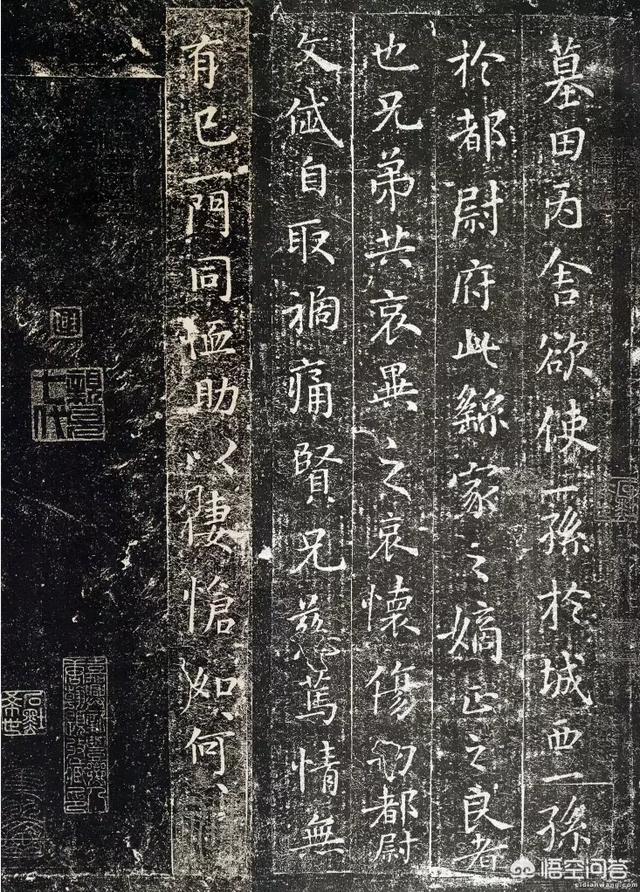 墓田丙舍欲使一孫於城西一孫
於都尉府此繇家之嫡正之良者
也兄弟共哀異之哀懷傷切都尉
文岱自取禍痛賢兄慈篤情無
有已一門同恤助以悽愴如〻何〻
悟空问答
cidianwang.com